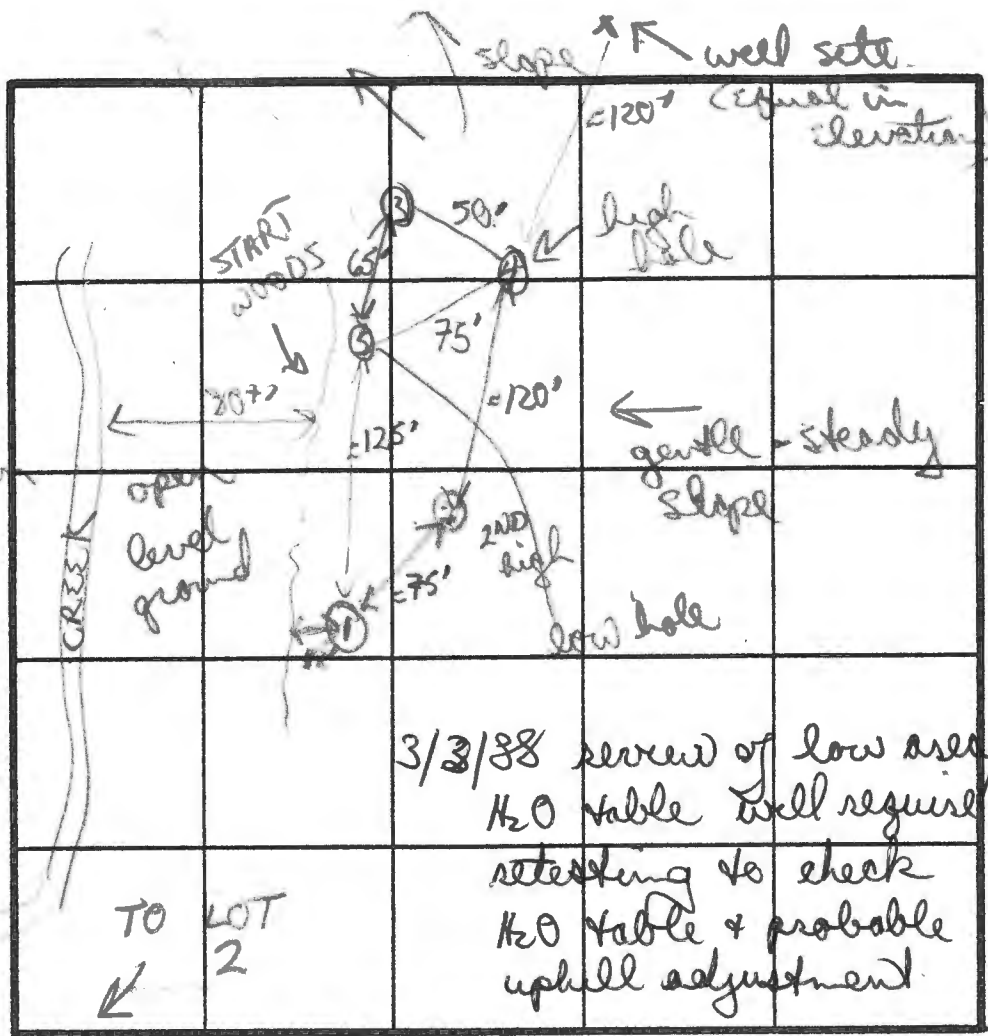 slope
well site
(equal in
elevation)
≈120'
START
WOODS
3
50'
high
hole
65'
4
5
75'
80+'
≈120'
≈125'
gentle - steady
slope
open
level
ground
2
2ND
high
CREEK
≈75'
1
low hole
3/3/88 review of low area
H2O table will require
retesting to check
H2O table & probable
uphill adjustment
TO LOT
2